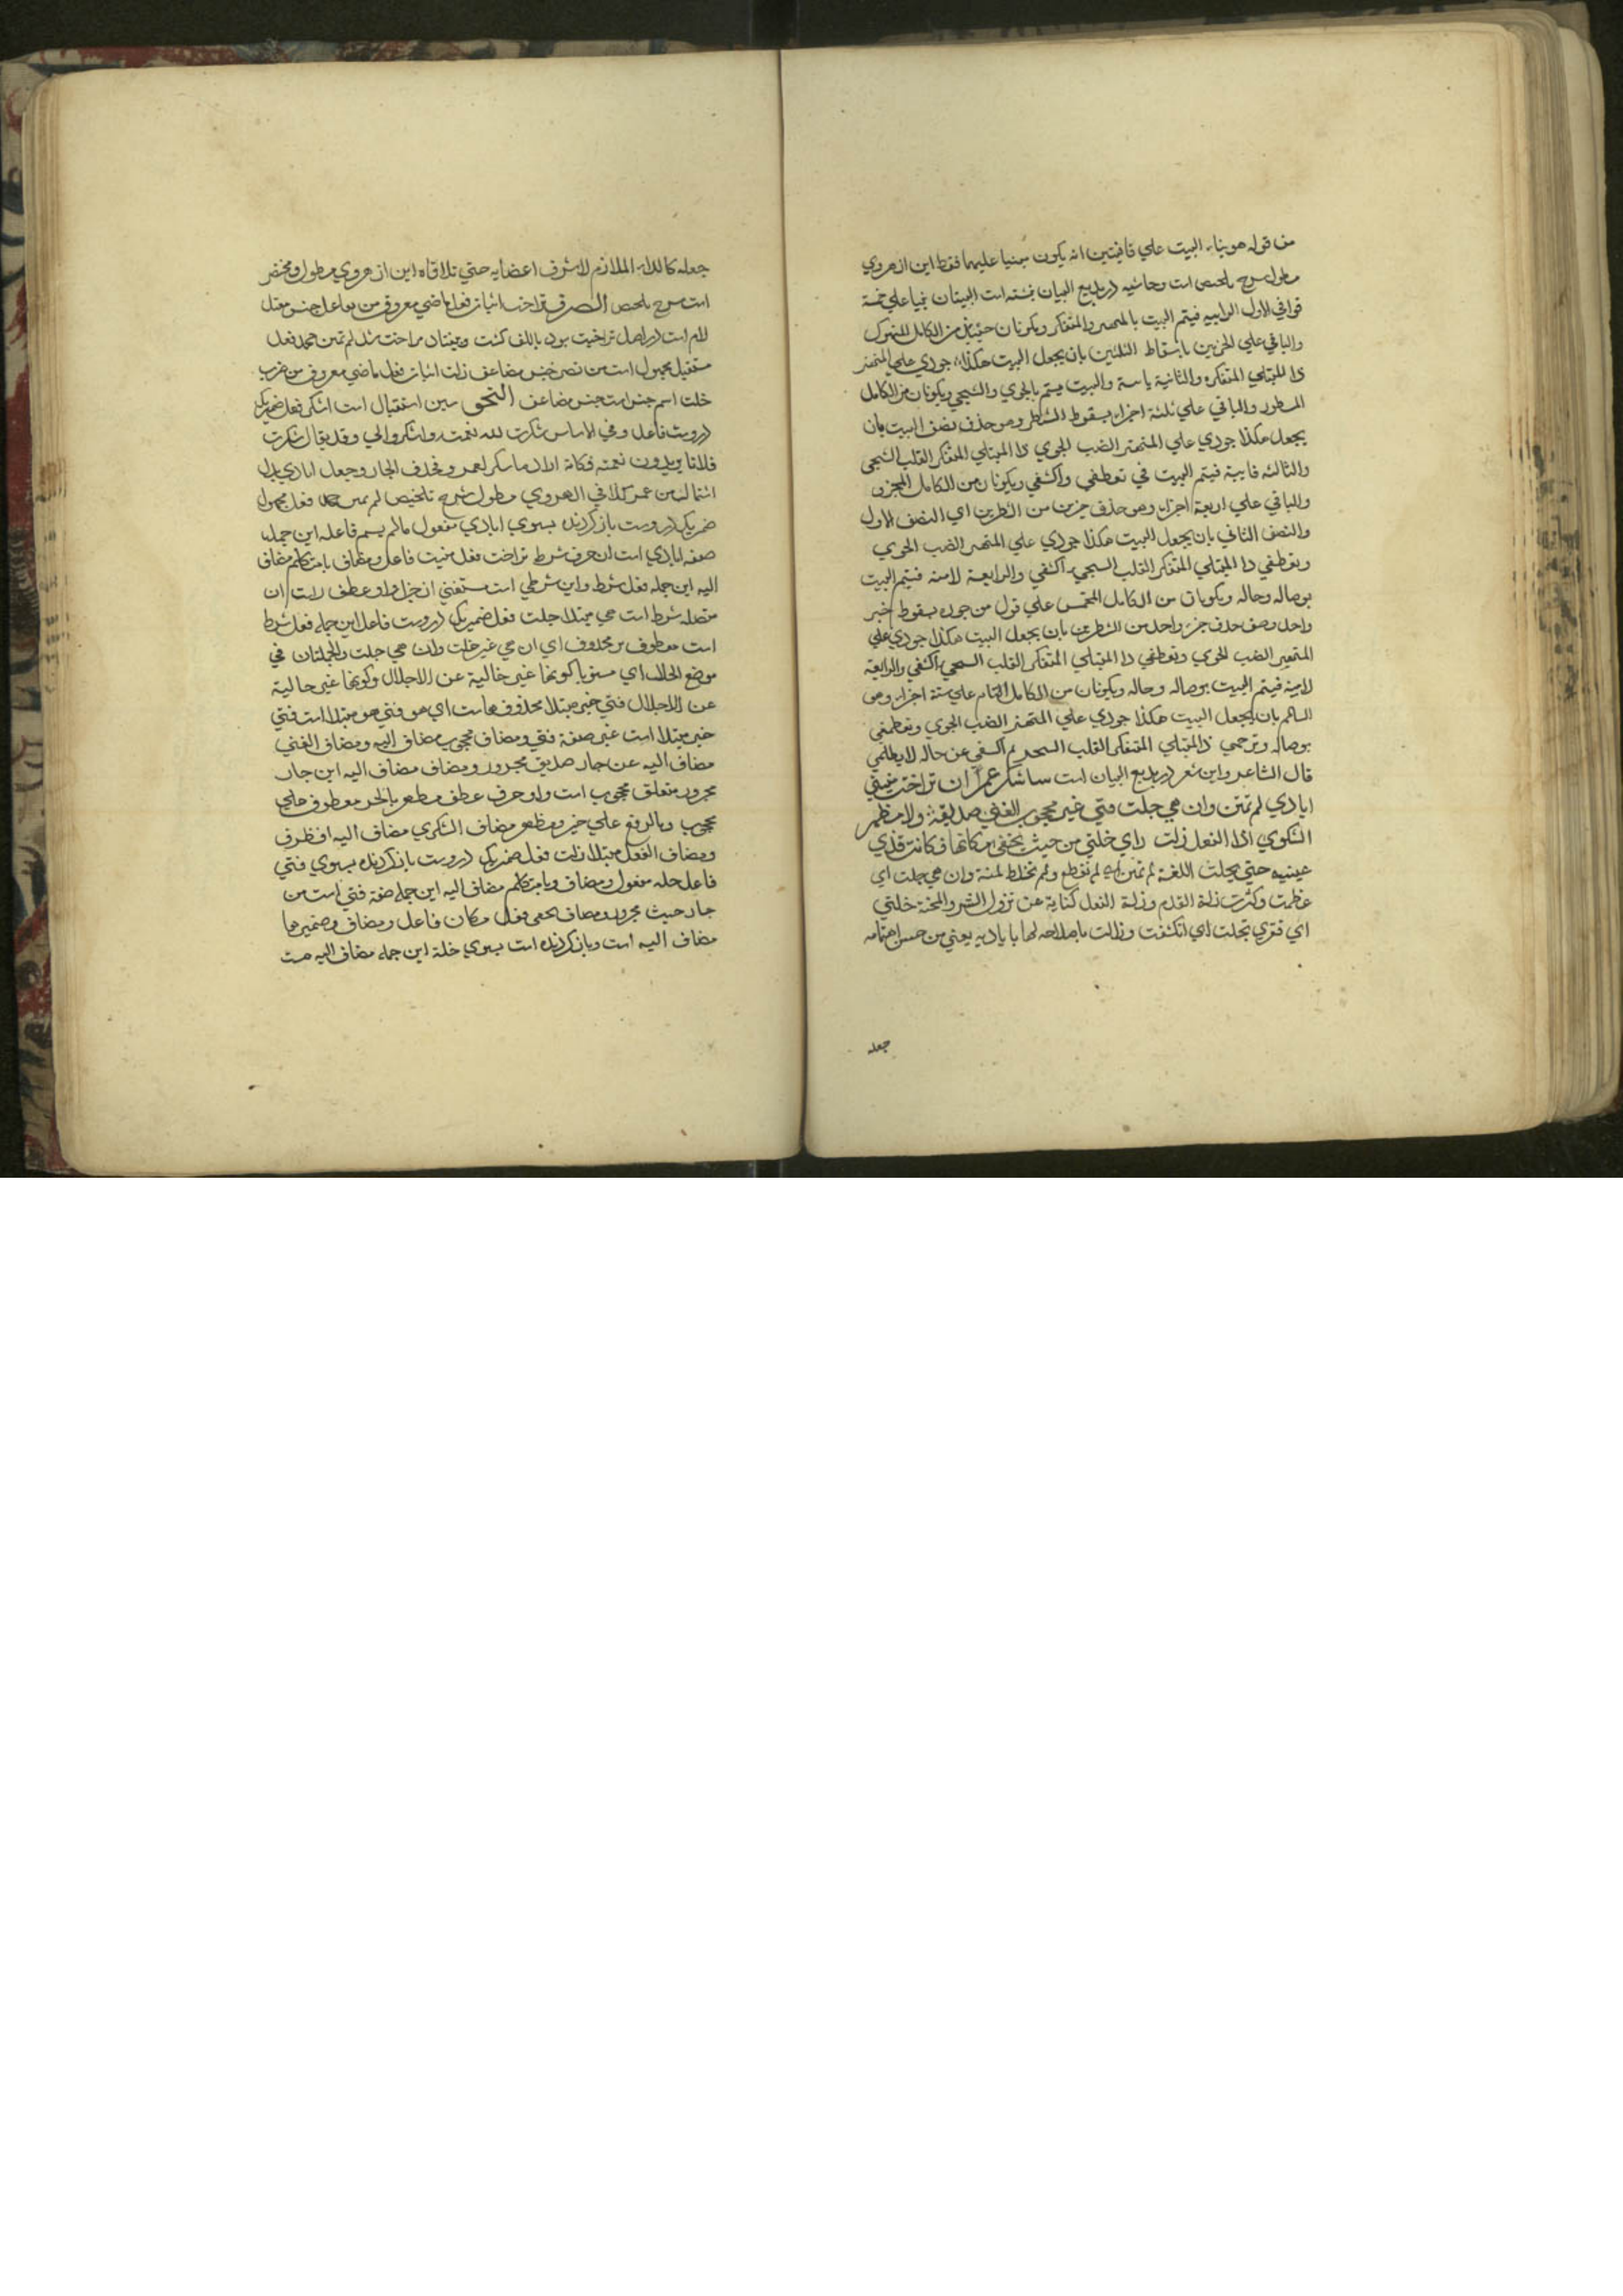 من قوله هو بناء البيت علي قافيتين انه يكون مبنيا عليهما فقط اين از هروي
مطول شرح تلخيص است وحاشيه در بديع البيان نبشته است البيتان بنيا علي خمسة
قوافي الاول الرابيه فيتم البيت بالمنهمر والمتفكر ويكونان حينئذ من الكامل المنهوك
والباقي علي الجزئين باسقاط الثلثين بان يجعل البيت هكذا جودي علي المنهمر
ذا المبتلي المتفكر والثانية يايية والبيت فيتم بالجوي والشجي ويكونان من الكامل
المشطور والباقي علي ثلثة اجزاء بسقوط الشطر وهو حذف نصف البيت بان
يجعل هكذا جودي علي المنهمر الصب الجوي ذا المبتلي المتفكر القلب الشجي
والثالثة فايية فيتم البيت في تعطفي واكشفي ويكونان من الكامل المجزو
والباقي علي اربعة اجزاء وهو حذف جزئين من الشطرين اي النصف الاول
والنصف الثاني بان يجعل البيت هكذا جودي علي المنهمر الصب الجوي
وتعطفي ذا المبتلي المتفكر القلب الشجي اكشفي والرابعة لامية فيتم البيت
بوصاله وحاله ويكونان من الكامل المخمس علي قول من جوزه بسقوط جزء
واحد وهو حذف جزء واحد من الشطرين بان يجعل البيت هكذا جودي علي
المنهمر الصب الجوي وتعطفي ذا المبتلي المتفكر القلب الشجي اكشفي والرابعة
لامية فيتم البيت بوصاله وحاله ويكونان من الكامل التام علي ستة اجزاء وهو
السالم بان يجعل البيت هكذا جودي علي المنهمر الصب الجوي وتعطفي
بوصاله وترحمي ذا المبتلي المتفكر القلب الشجي ثم اكشفي عن حاله لا يظلمي
قال الشاعر واين شعر در بديع البيان است ساشكر عمرا ان تراخت منيتي
ايادي لم تمنن وان هي جلت فتي غير محجوب الغني صديقه ولا مظهر
الشكوي اذا النعل زلت راي خلتي من حيث يخفي مكانها فكانت قذي
عينيه حتي تجلت اللغة لم تمنن اي لم تقطع ولم تخلط لمنة وان هي جلت اي
عظمت وكثرت زلة القدم وزلة النعل كناية عن نزول الشر والمحنة خلتي
اي فقري تجلت اي انكشفت وزالت باصلاحه لها باياديه يعني من حسن اهتمامه
جعله
جعله كالداء الملازم لاشرف اعضايه حتي تلاقاه اين از هروي مطول ومختصر
است شرح تلخيص الصرف تراخت اثبات فعل ماضي معروف من تفاعل جنس معتل
لام است در اصل تراخيت بود با الف كشت وبيفتاد تراخت شد لم تمنن جحد فعل
مستقبل مجهول است من نصر جنس مضاعف زلت اثبات فعل ماضي معروف من ضرب
خلت اسم جنس است جنس مضاعف النحو سين استقبال است اشكر فعل ضميريكي
دروست فاعل وفي الاساس شكرت لله نعمته واشكروا لي وقد يقال شكرت
فلانا يريدون نعمته فكانه اراد ساشكر لعمرو فحذف الجار وجعل ايادي بدل
اشتمال من عمر كذا في الهروي مطول شرح تلخيص لم تمنن جحد فعل مجهول
ضميريكي دروست بازكردنده بسوي ايادي مفعول ما لم يسم فاعله اين جمله
صفه ايادي است ان حرف شرط تراخت فعل منيت فاعل ومضاف يا متكلم مضاف
اليه اين جمله فعل شرط واين شرطي است مستغني از جزا واو عطف راست ان
متصله شرط است هي مبتدا جلت فعل ضميريكي دروست فاعل اين جمله فعل شرط
است معطوف بر محذوف اي ان هي غير جلت وان هي جلت والجملتان في
موضع الحال اي مستويا كونها غير خالية عن الاجلال وكونها غير حالية
عن الاجلال فتي خبر مبتدا محذوف هاست اي هو فتي هو مبتدا است فتي
خبر مبتدا است غير صفة فتي ومضاف محجوب مضاف اليه ومضاف الغني
مضاف اليه عن جار صديق مجرور ومضاف ه مضاف اليه اين جار
مجرور متعلق محجوب است واو حرف عطف مظهر بالجر معطوف علي
محجوب وبالرفع علي خبر ومظهر مضاف الشكوي مضاف اليه اذا ظرف
ومضاف النعل مبتدا زلت فعل ضميريكي دروست بازكردنده بسوي فتي
فاعل خله مفعول ومضاف ويا متكلم مضاف اليه اين جمله صفة فتي است من
جار حيث مجرور ومضاف يخفي فعل مكان فاعل ومضاف وضمير ها
مضاف اليه است وبازكردنده است بسوي خلة اين جمله مضاف اليه حيث